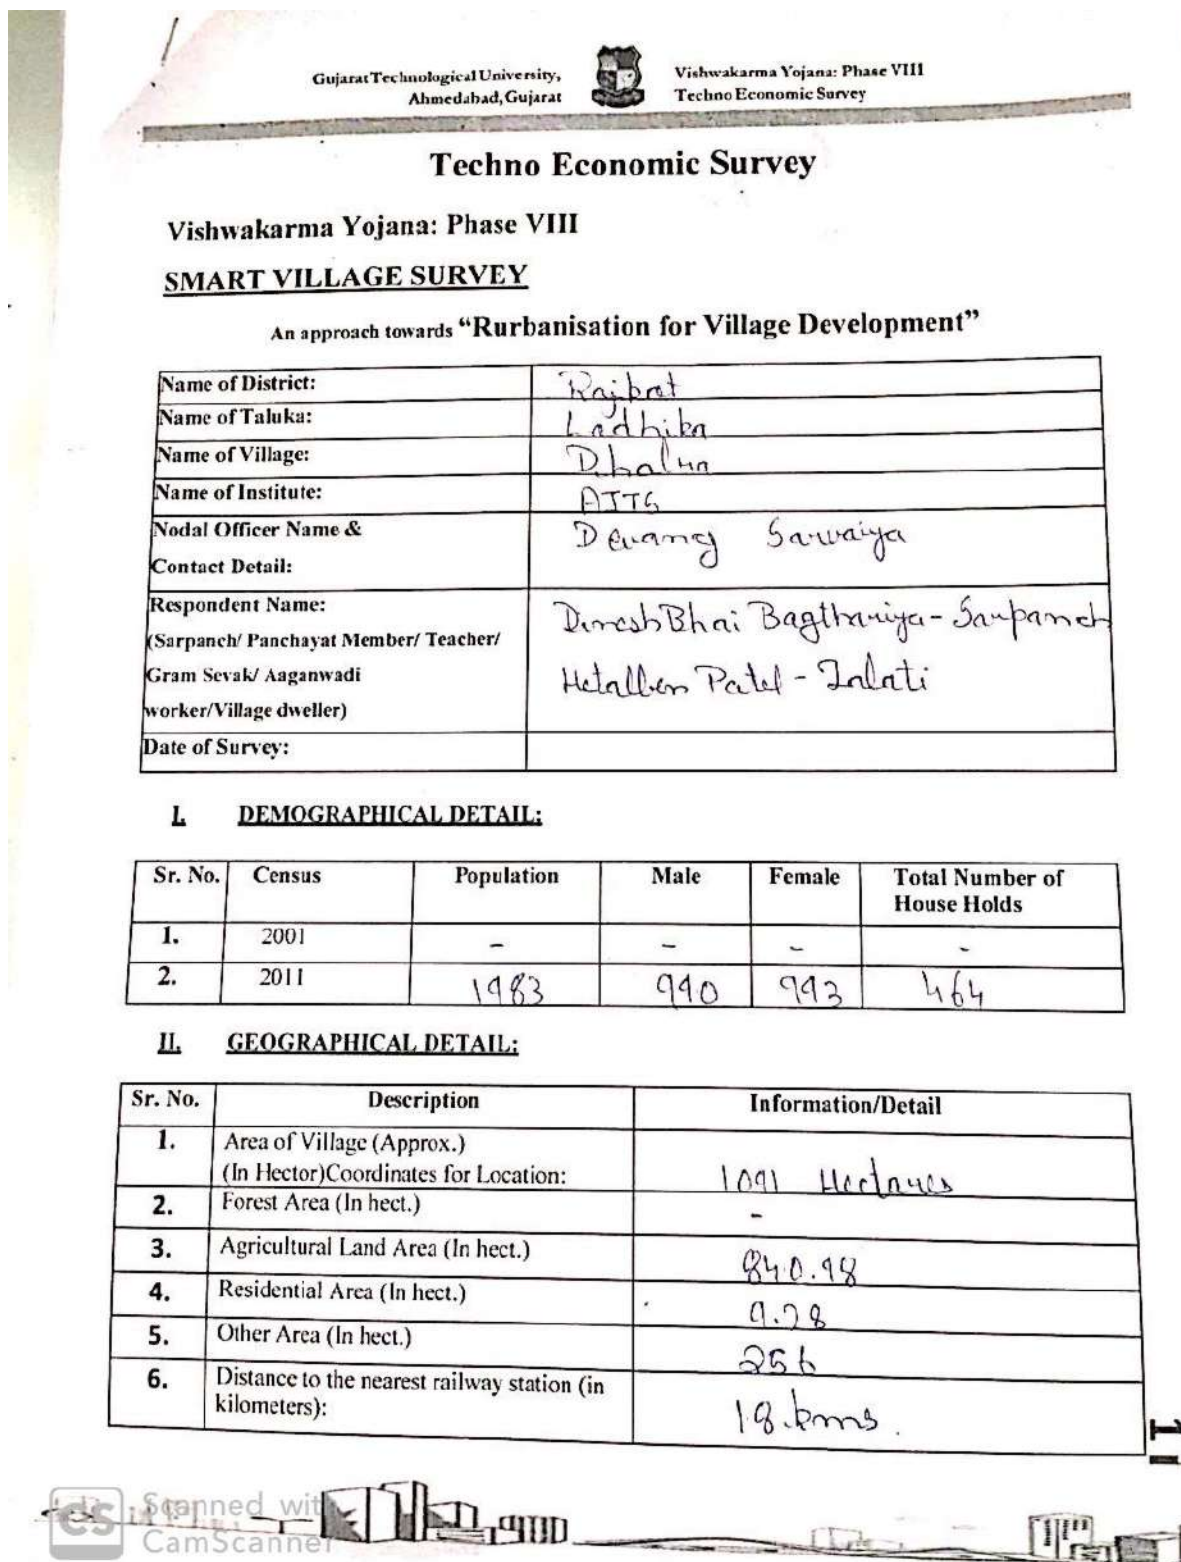 Gujarat Technological University, Vishwakarma Yojana: Phase VIII
Ahmedabad, Gujarat Techno Economic Survey
Techno Economic Survey
Vishwakarma Yojana: Phase VIII
SMART VILLAGE SURVEY
An approach towards "Rurbanisation for Village Development"
Name of District: Rajkot
Name of Taluka: Lodhika
Name of Village:
Name of Institute: AITS
Nodal Officer Name & Devang Sarvaiya
Contact Detail:
Respondent Name: DineshBhai Bagthariya - Sarpanch
(Sarpanch/ Panchayat Member/ Teacher/
Gram Sevak/ Aaganwadi Hetalben Patel - Talati
worker/Village dweller)
Date of Survey:
I. DEMOGRAPHICAL DETAIL:
Sr. No. Census Population Male Female Total Number of
House Holds
1. 2001 - - - -
2. 2011 1983 990 993 464
II. GEOGRAPHICAL DETAIL:
Sr. No. Description Information/Detail
1. Area of Village (Approx.)
(In Hector)Coordinates for Location: 1091 Hectares
2. Forest Area (In hect.) -
3. Agricultural Land Area (In hect.) 840.98
4. Residential Area (In hect.)
5. Other Area (In hect.) 256
6. Distance to the nearest railway station (in
kilometers): 18 kms.
1
Scanned with
CamScanner